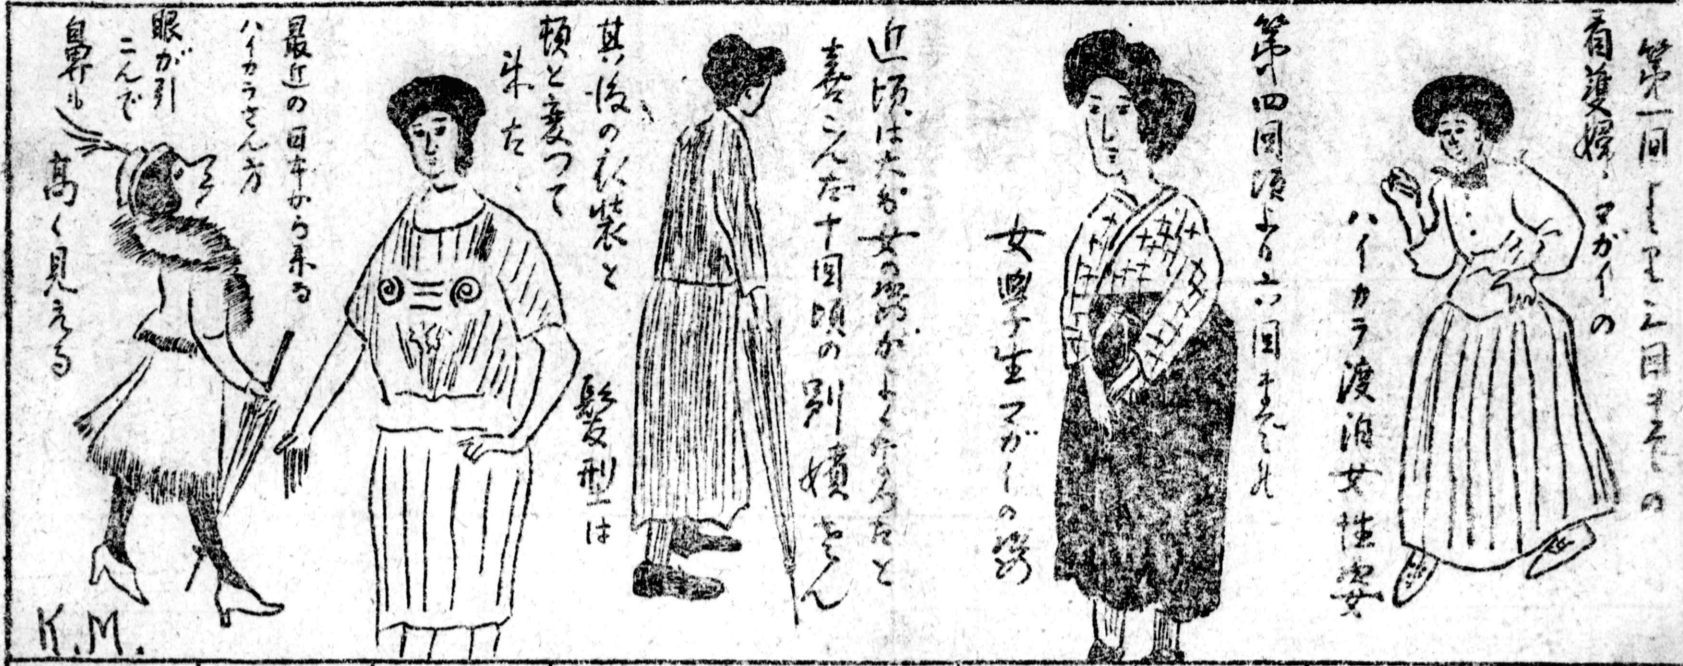 第一回より三回までの
看護婦マガイの
ハイカラ渡泊女性姿
第四回頃より六回までは
女学生マガイの姿
近頃は大分女の姿がよくなつたと
喜こんだ十回頃の別嬪さん
其後の衣装と
髪型は
頓と変つて
来た、
最近の日本から来る
ハイカラさん方
眼が引
こんで
鼻も
高く見える
K.M.